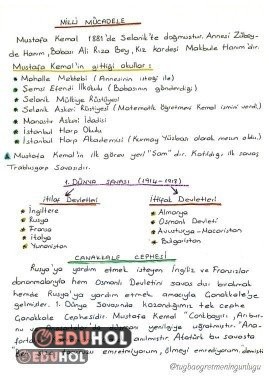 MİLLİ MÜCADELE
Mustafa Kemal 1881'de Selanik'te doğmuştur. Annesi Zübey-
de Hanım, Babası Ali Rıza Bey, Kız kardeşi Makbule Hanım'dır.
Mustafa Kemal'in gittiği okullar:
Mahalle Mektebi (Annesinin isteği ile)
Şemsi Efendi İlkokulu (Babasının gönderdiği)
Selanik Mülkiye Rüştiyesi
Selanik Askeri Rüştiyesi (Matematik Öğretmeni Kemal ismini verdi.)
Manastır Askeri İdadisi
İstanbul Harp Okulu
İstanbul Harp Akademisi (Kurmay Yüzbaşı olarak mezun oldu.)
Mustafa Kemal'in ilk görev yeri "Şam" dır. Katıldığı ilk savaş
Trablusgarp Savaşıdır.
1. DÜNYA SAVAŞI (1914-1918)
İtilaf Devletleri
İttifak Devletleri
İngiltere
Almanya
Rusya
Osmanlı Devleti
Fransa
Avusturya-Macaristan
İtalya
Bulgaristan
Yunanistan
ÇANAKKALE CEPHESİ
Rusya'ya yardım etmek isteyen İngiliz ve Fransızlar
donanmalarıyla hem Osmanlı Devletini savaş dışı bırakmak
hemde Rusya'ya yardım etmek amacıyla Çanakkale'ye
gelmişler. 1. Dünya Savaşında kazandığımız tek cephe
Çanakkale Cephesidir. Mustafa Kemal "Conkbayırı, Arıbur-
yenilgiye uğratmıştır. "Ana-
anılmıştır. Atatürk bu savaşta
emretmiyorum, ölmeyi emrediyorum, demişti
EDUHOL
EDUHOL
@tugbaogretmeningunlugu